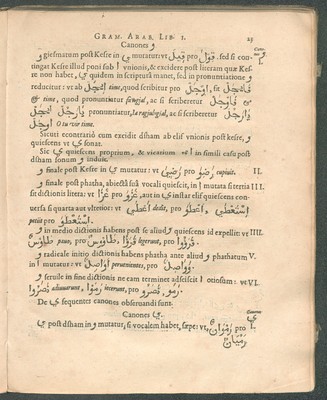 GRAM. ARAB. LIB. I. 25
Canones و
و giesmatum post Kesre in ي mutatur: vt قِيلَ pro قِوْلَ. sed si con- Cano- nes و
tingat Kesre illud poni sub ا vnionis, & excidere post literam quæ Kes- I.
re non habet, ي quidem in scriptura manet, sed in pronuntiatione و
reducitur: vt ab اِيجَلْ time, quod scribitur pro اِوْجَلْ, fit فَايجَلْ
& time, quod pronuntiatur ac si scriberetur فَاوْجَلْ &
pronuntiatur, ac si scriberetur
اوجل O tu vir time.
Sicuti econtrariò cum excidit dsham ab elif vnionis post kesre, و
quiescens vt ي sonat.
Sic ي quiescens proprium, & vicarium ا in simili casu post
dsham sonum و induit.
و finale post Kesre in ي mutatur: vt رَضِيَ pro رَضِوَ cupiuit. II.
و finale post phatha, abiectâ suâ vocali quiescit, in ا mutata si tertia III.
sit dictionis litera: vt غَزَا pro غَزَوَ, aut in ي instar elif quiescens con-
uersa si quarta aut vlterior: vt اَعْطَى dedit, pro اَعْطَوَ, اِسْتَعْطَى
petiit pro اِسْتَعْطَوَ.
و in medio dictionis habens post se aliud و quiescens id expellit: vt IIII.
طَاوُسٌ pauo, pro طَاوُوسٌ, قَرَؤُا legerunt, pro قَرَؤُوا.
و radicale initio dictionis habens phatha ante aliud و phathatum V.
in ا mutatur: vt اَوَاصِلُ peruenientes, pro وَوَاصِلُ.
و seruile in fine dictionis ne eam terminet adsciscit ا otiosam: vt VI.
نَصَرُوا adiuuerunt, رَمَوْا iecerunt, pro نَصَرُو, رَمَوْ.
De ي sequentes canones obseruandi sunt.
Canones ي. Canones ي
ي post dsham in و mutatur, si vocalem habet, sæpe: vt, رَمُوَانٌ pro I.
رَمُيَانٌ